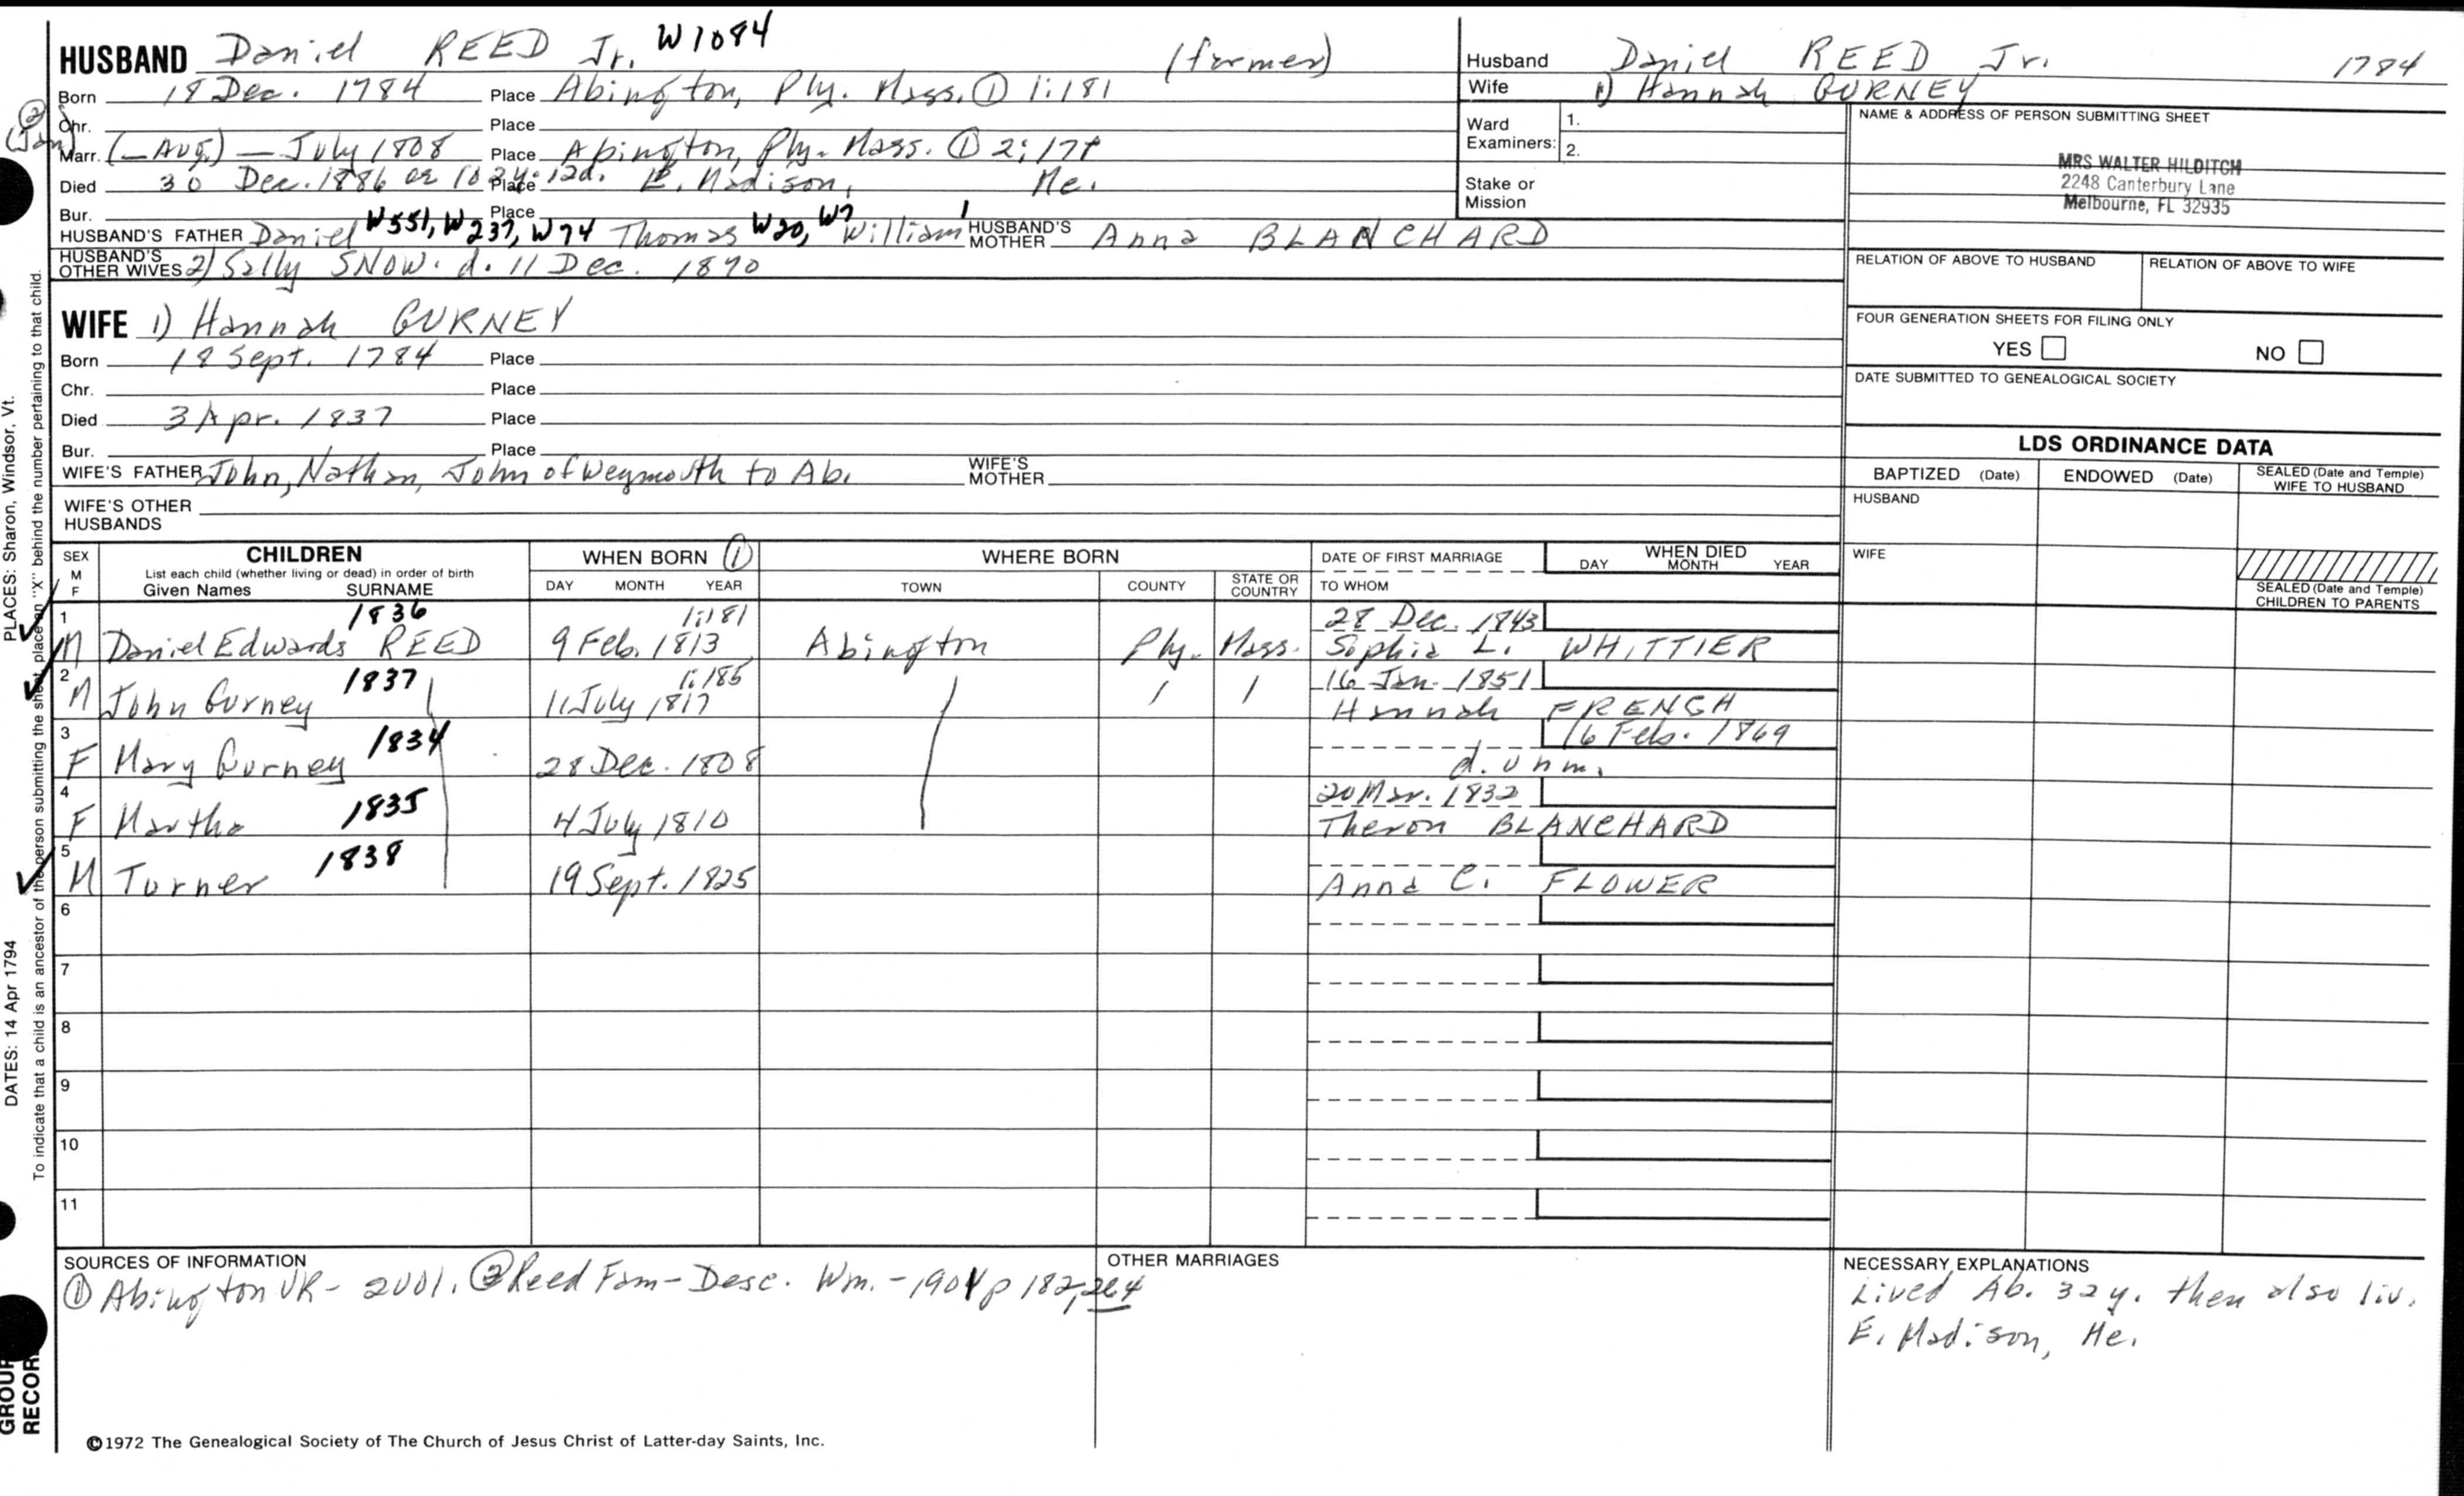 HUSBAND Daniel REED Jr. W1084 (farmer)
Born 18 Dec. 1784 Place Abington, Ply. Mass. ① 1:181
Chr. Place
② (Jan)
Marr. (— Aug.) — July 1808 Place Abington, Ply. Mass. ① 2:178
Died 30 Dec. 1886 or 102y. 12d. Place E. Madison, Me.
Bur. Place
HUSBAND'S FATHER Daniel W551, W237, W74 Thomas W20, W7 William 1 HUSBAND'S MOTHER Anna BLANCHARD
HUSBAND'S OTHER WIVES 2) Sally SNOW. d. 11 Dec. 1870
WIFE 1) Hannah GURNEY
Born 18 Sept. 1784 Place
Chr. Place
Died 3 Apr. 1837 Place
Bur. Place
WIFE'S FATHER John, Nathan, John of Weymouth to Ab. WIFE'S MOTHER
WIFE'S OTHER HUSBANDS
Husband Daniel REED Jr. 1784
Wife 1) Hannah GURNEY
Ward Examiners: 1.
2.
Stake or Mission
NAME & ADDRESS OF PERSON SUBMITTING SHEET
MRS WALTER HILDITCH
2248 Canterbury Lane
Melbourne, FL 32935
RELATION OF ABOVE TO HUSBAND RELATION OF ABOVE TO WIFE
FOUR GENERATION SHEETS FOR FILING ONLY
YES NO
DATE SUBMITTED TO GENEALOGICAL SOCIETY
LDS ORDINANCE DATA
BAPTIZED (Date) ENDOWED (Date) SEALED (Date and Temple) WIFE TO HUSBAND
HUSBAND
WIFE
SEALED (Date and Temple) CHILDREN TO PARENTS
SEX M F CHILDREN WHEN BORN ① WHERE BORN DATE OF FIRST MARRIAGE WHEN DIED
List each child (whether living or dead) in order of birth
Given Names SURNAME DAY MONTH YEAR TOWN COUNTY STATE OR COUNTRY TO WHOM DAY MONTH YEAR
1 1836 1:181 28 Dec. 1843
M Daniel Edwards REED 9 Feb. 1813 Abington Ply. Mass. Sophia L. WHITTIER
2 1837 1:185 16 Jan. 1851
M John Gurney 11 July 1817 Hannah FRENCH
3 1834 16 Feb. 1869
F Mary Gurney 28 Dec. 1808 d. unm.
4 1835 20 Mar. 1832
F Martha 4 July 1810 Theron BLANCHARD
5 1838
M Turner 19 Sept. 1825 Anna C. FLOWER
6
7
8
9
10
11
SOURCES OF INFORMATION
① Abington VR- 2001. ② Reed Fam- Desc. Wm. - 1901 p 182, 264
OTHER MARRIAGES
NECESSARY EXPLANATIONS
Lived Ab. 32 y. then also liv.
E. Madison, Me.
©1972 The Genealogical Society of The Church of Jesus Christ of Latter-day Saints, Inc.
PLACES: Sharon, Windsor, Vt.
DATES: 14 Apr 1794
To indicate that a child is an ancestor of the person submitting the sheet, place an "X" behind the number pertaining to that child.
GROUP
RECORD